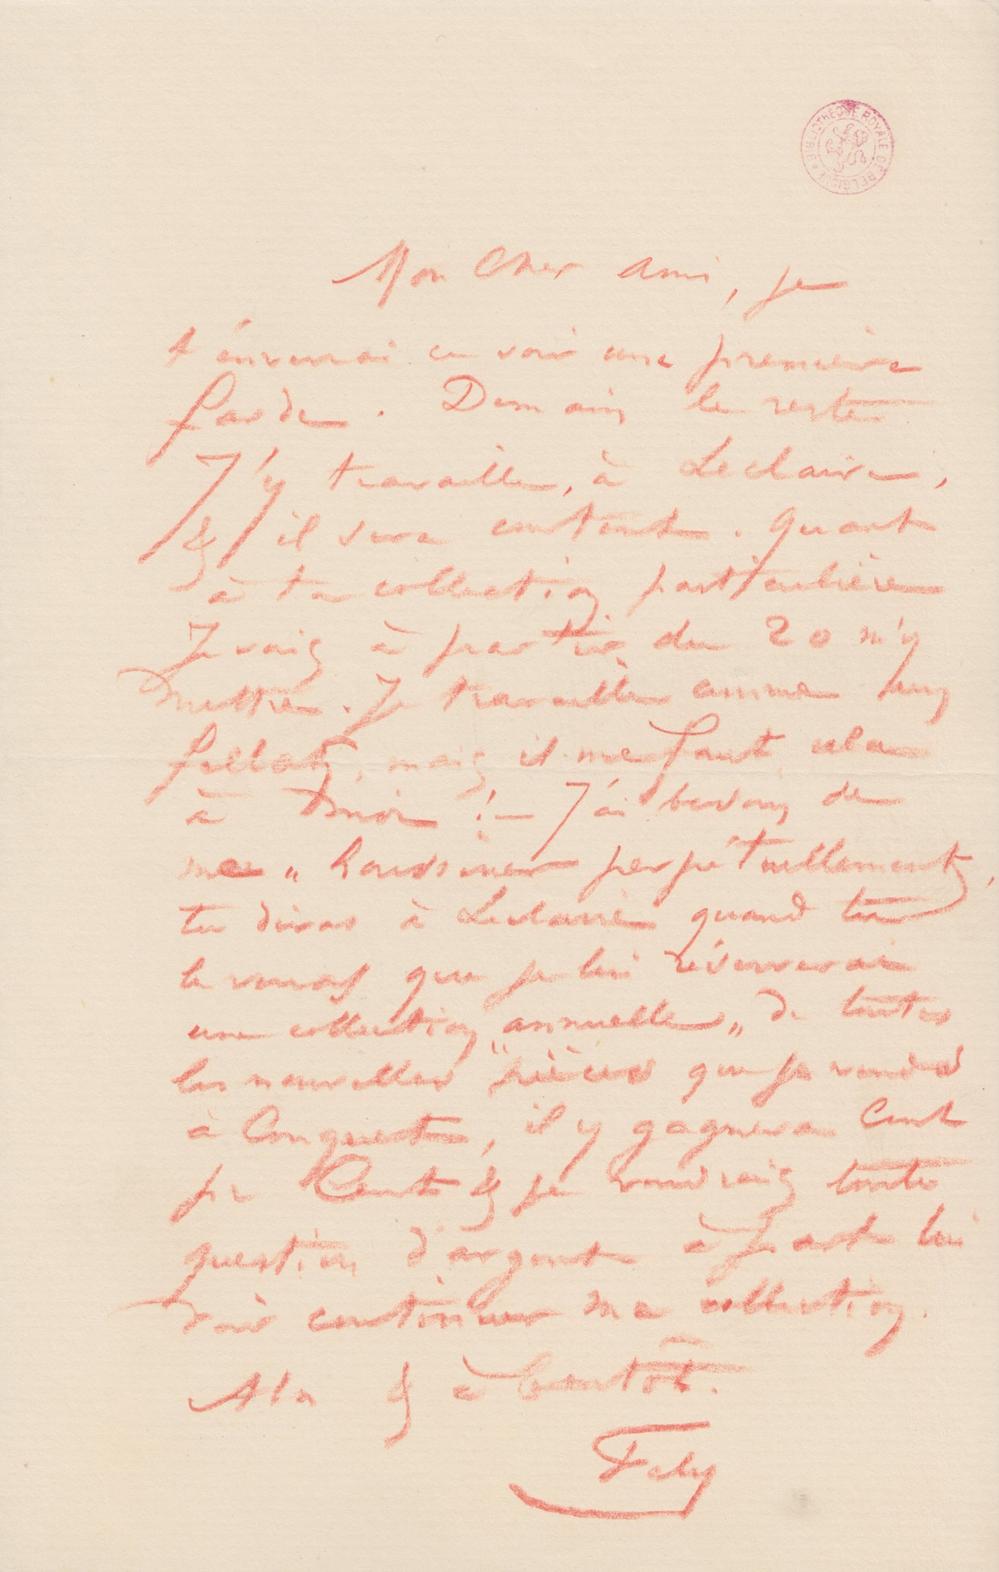 BIBLIOTHÈQUE ROYALE DE BELGIQUE
Mon Cher Ami, je
t'enverrai ce soir une première
farde. Demain le reste
J'y travaille, à Leclaire,
& il sera content. Quant
à ta collection particulière
Je vais à partir du 20 m'y
mettre. Je travaille comme un
fellah, mais il me faut cela
à moi ! – J'ai besoin de
me "houssiner perpétuellement,
tu diras à Leclaire quand tu
le verras que je lui réserverai
une collection "annuelle" de toutes
les nouvelles pièces que je vends
à Conquet, il y gagnera Cent
pr Cent & je voudrais toute
question d'argent à part lui
voir continuer ma collection.
A ta & à bientôt.
Fély